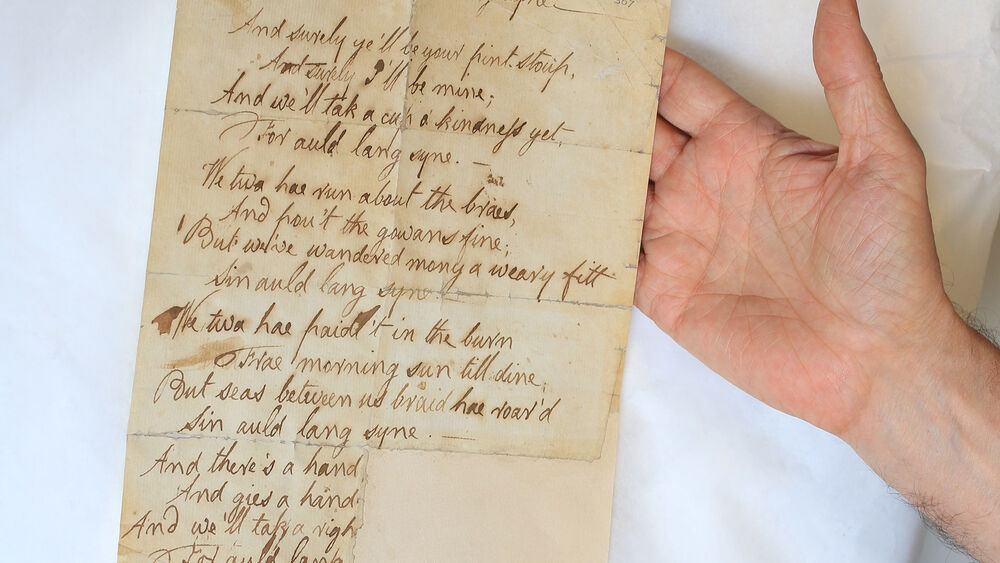 syne.
367
And surely ye'll be your pint-stoup,
And surely I'll be mine;
And we'll tak a cup o' kindness yet,
For auld lang syne. —
We twa hae run about the braes,
And pou't the gowans fine;
But we've wandered mony a weary fitt
Sin auld lang syne. —
We twa hae paidl't in the burn
Frae morning sun till dine;
But seas between us braid hae roar'd
Sin auld lang syne. —
And there's a hand
And gies a hand
And we'll tak a righ
For auld lang